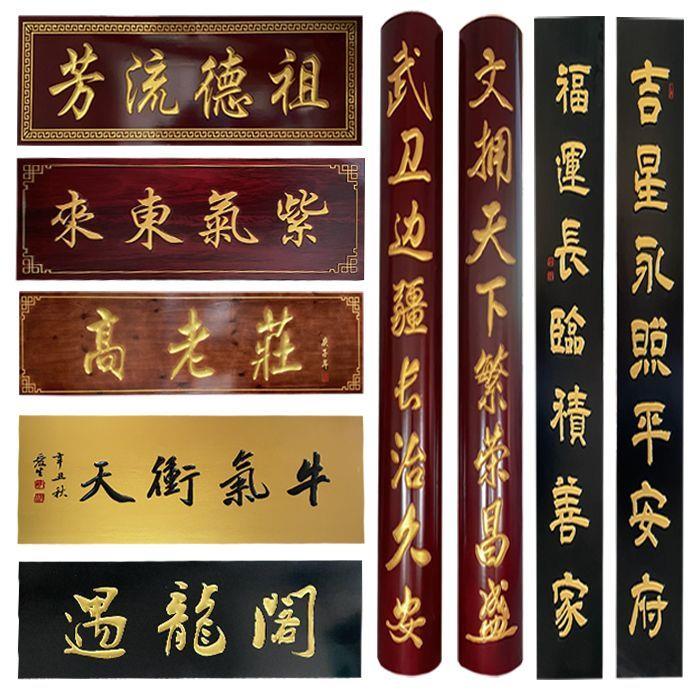 祖德流芳
紫氣東來
高老莊
牛氣衝天
辛丑秋
遇龍閣
文拥天下繁荣昌盛
武卫边疆长治久安
吉星永照平安府
福運長臨積善家